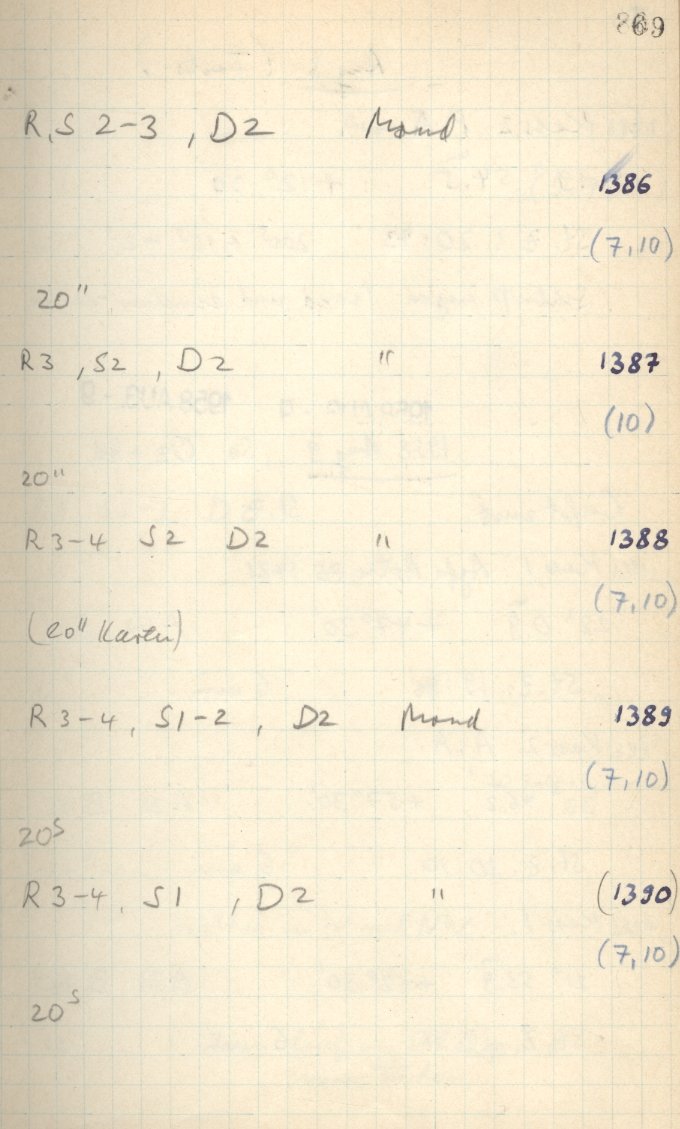 869
R, S 2-3 , D2 Mond
1386
(7,10)
20"
R3 , S2 , D2 "
1387
(10)
20"
R3-4 S2 D2 "
1388
(7,10)
(20" Kartei)
R3-4, S1-2 , D2 Mond
1389
(7,10)
20s
R3-4, S1 , D2 "
(1390)
(7,10)
20s